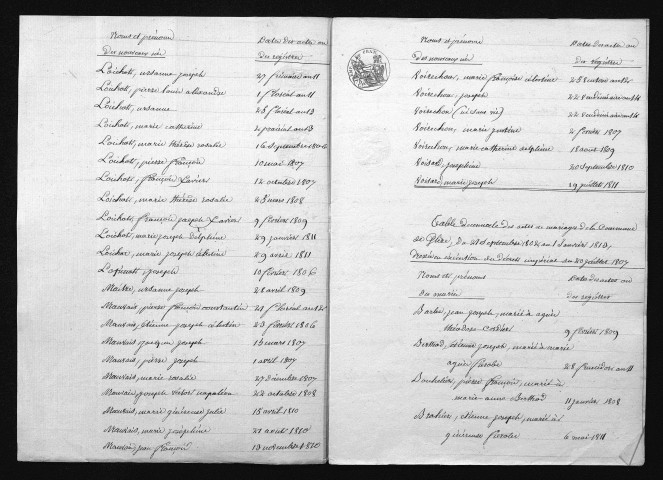 Noms et prénoms Dates des actes au
Des nouveaux nés Des régistres
Loichot, ursanne joseph 27 frimaire an 11
Loichot, pierre louis alexandre 1 floréal an 11
Loichot, ursanne 25 floréal an 13
Loichot, marie catherine 2 prairial an 13
Loichot, marie thérèse rosalie 16 septembre 1806
Loichot, pierre françois 10 mai 1807
Loichot, françois Xavier 12 octobre 1807
Loichot, marie thérèse rosalie 25 mars 1808
Loichot, françois joseph Xavier 9 février 1809
Loichot, marie joseph Delphine 29 janvier 1811
Loichot, marie joseph célestine 29 avril 1811
joseph 10 février 1806
Maitre, ursanne joseph 28 avril 1809
Mauvais, pierre françois constantin 21 floréal an 12
Mauvais, étienne joseph célestin 23 février 1806
Mauvais, jacques joseph 16 mars 1807
Mauvais, pierre joseph 1 avril 1807
Mauvais, marie rosalie 27 décembre 1807
Mauvais, joseph victor napoléon 22 octobre 1808
Mauvais, marie généreuse julie 15 avril 1810
Mauvais, marie joséphine 21 août 1810
Mauvais, jean françois 13 novembre 1810
Noms et prénoms Dates des actes au
Des nouveaux nés Des régistres
Voirechon, marie françoise célestine
Voirechon, joseph 22 vendémiaire an 14
Voirechon 22 vendémiaire an 14
Voirechon, marie justine 2 février 1807
Voirechon, marie catherine delphine 18 août 1809
Voisard, joséphine 20 septembre 1810
Voisard, marie joseph 19 juillet 1811
Table décennale des actes de mariage de la Commune
de Glère, Du 21 septembre 1802 au 1 janvier 1813,
exécution du Décret impérial du 20 juillet 1807
Noms et prénoms Dates des actes au
Des mariés Des registres
Barbe, jean joseph, marié à agnès
théodose Cordier 9 février 1809
Berthod, étienne joseph, marié à marie
agnès 28 frimaire an 11
pierre françois, marié à
marie anne Berthod 11 janvier 1808
étienne joseph, marié à
généreuse 6 mai 1811